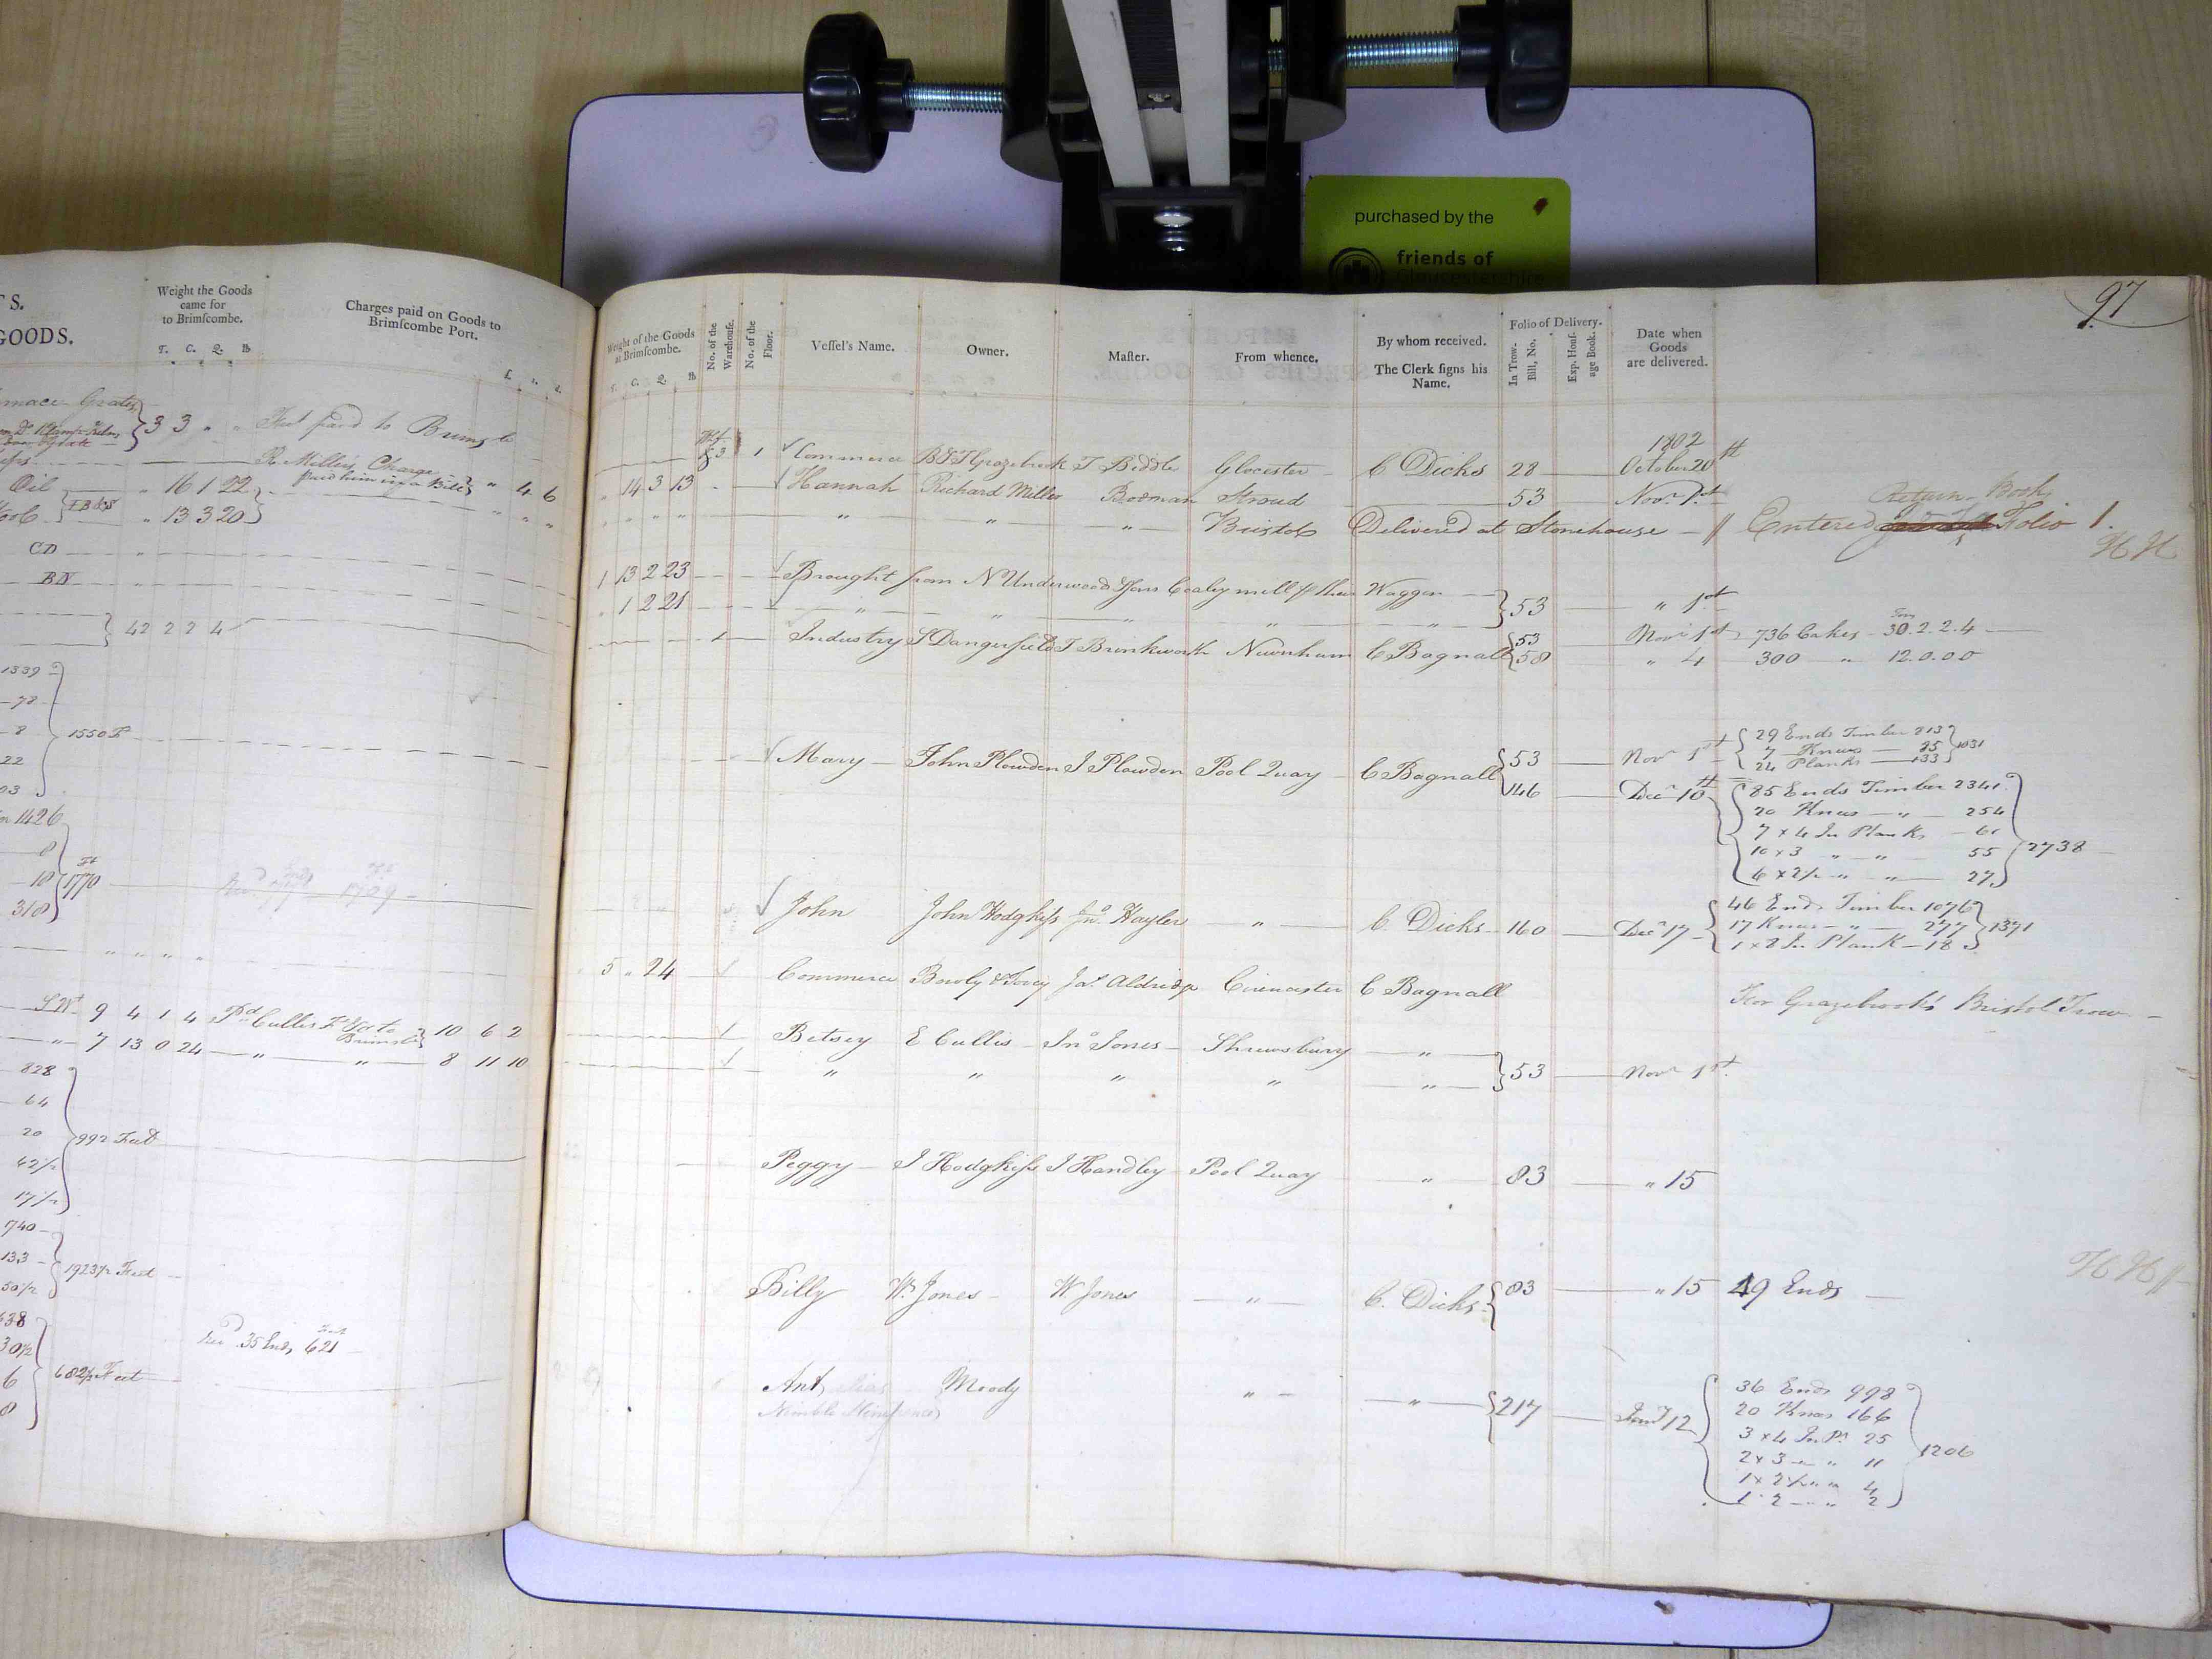 purchased by the
friends of
S.
GOODS.
Weight the Goods
came for
to Brimſcombe.
T. C. Q. lb
Charges paid on Goods to
Brimſcombe Port.
Grates
3 3 " "
R. Millers Charge
Oil
" 16 1 22
" 4 6
" 13 3 20
CD
BN
42 2 2 4
1339
78
8
1550
22
1426
8
18
1770
318
9 4 1 4
10 6 2
" 7 13 0 24 " " 8 11 10
828
64
20
992 Feet
42½
17½
740
133
1923½ Feet
50½
638
30½
35 Ends 621
6
8
97
Weight of the Goods
at Brimſcombe.
T. C. Q. lb
No. of the
Warehouſe.
No. of the
Floor.
Veſſel's Name.
Owner.
Maſter.
From whence.
By whom received.
The Clerk ſigns his
Name.
Folio of Delivery.
In Trow-
Bill, No.
Exp. Houſ-
age Book.
Date when
Goods
are delivered.
1802
1 Commerce B & T Grazebrook T Biddle Glocester C Dicks 28 October 20th
" 14 3 13 Hannah Richard Miller Bodman Stroud 53 Novr. 1st
" " " " " " " Bristol Delivered at Stonehouse
Return Book
Entered Folio 1.
H H
1 13 2 23 Brought from N Underwood & Sons Coaley mill p their Waggon
" 1 2 21 " " " " " 53 " 1st
Industry S Dangerfield T Brinkworth Newnham C Bagnall 53 Novr 1st 736 Cakes 30.2.2.4
58 " 4 300 " 12.0.0.0
Mary John Plowden J Plowden Pool Quay C Bagnall 53 Novr 1st
29 Ends Timber 813
7 Knees 85
24 Planks 133
1031
146 Decr 10th
85 Ends Timber 2341
20 Knees " 254
7 x 4 In Planks 61
10 x 3 " " 55
6 x 2½ " " 27
2738
John John Hodgkiss Jno. Hayler " C. Dicks 160 Decr 17
46 Ends Timber 1076
17 Knees " 277
1 x 8 In Plank 18
1371
5 " 24 Commerce Bowly & Tovey Jas. Aldridge Cirencester C Bagnall
For Grazebrook's Bristol Trow
Betsey E Cullis Jno Jones Shrewsbury "
" " " " " 53 Novr 1st
Peggy J Hodgkiss J Handley Pool Quay " 83 " 15
Billy W. Jones W. Jones " C. Dicks 83 " 15 49 Ends
H H
Ant, alias Moody " " 217 Jany 12
Nimble
36 Ends 998
20 Knees 166
3 x 4 In Pl. 25
2 x 3 " " 11
1 x 2½ " " 4
1 2 " " 2
1206